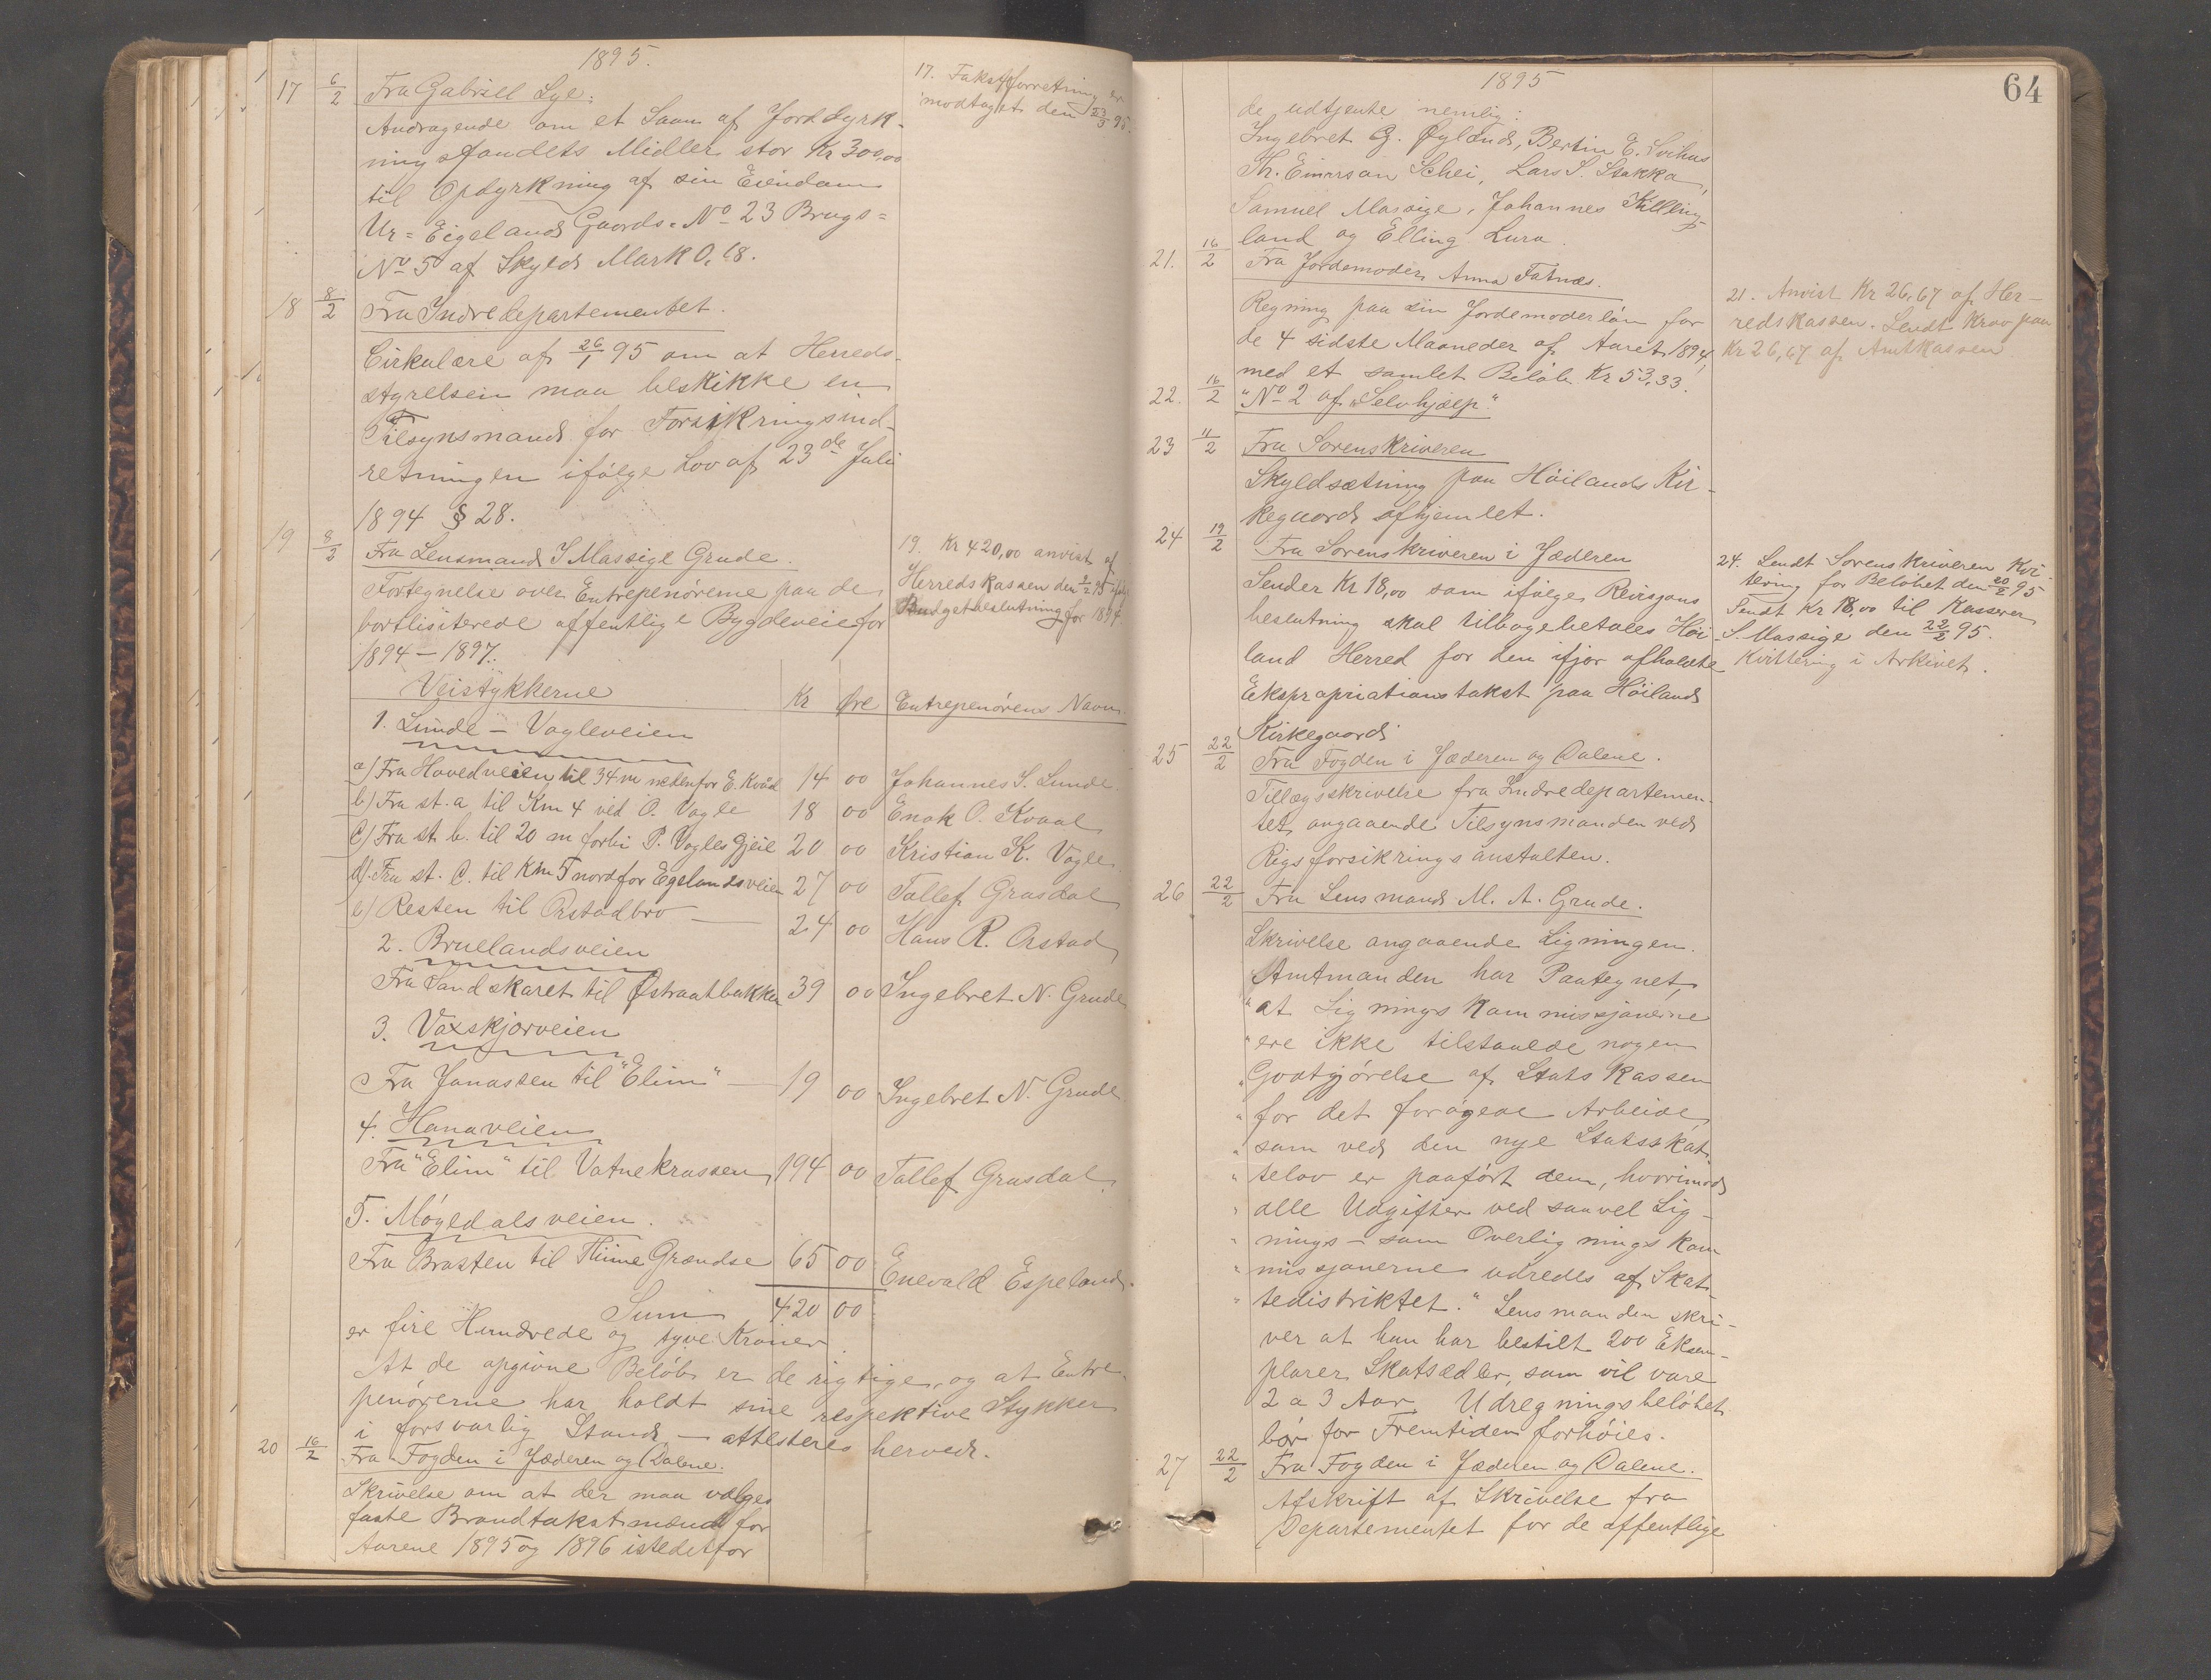 1895.
17 6/2 Fra Gabriel Lye:
Andragende om et Laan af Jorddyrk-
ningsfondets Midler stor Kr 300,00
til Opdyrkning af sin Eiendom
Ur-Eigeland Gaards-No 23 Brugs-
No 5 af Skyld Mark 0,18.
17. Takstforretning er
modtaget den 23/3 95.
18 8/2 Fra Indredepartementet.
Cirkulære af 26/1 95 om at Herreds-
styrelsein maa beskikke en
Tilsynsmand for Forsikringsind-
retningen ifølge Lov af 23de Juli
1894 § 28.
19 8/2 Fra Lensmand I Massige Grude.
Fortegnelse over Entrepenørerne paa de
bortlisiterede offentlige Bygdeveie for
1894 – 1897.
19. Kr 420,00 anvist af
Herredskassen den
Budgetbeslutning for 1894.
Veistykkerne Kr Øre Entrepenørens Navn.
1. Lunde – Vagleveien
a) Fra Hovedveien til 34 m nedenfor E. Kvål 14 00 Johannes S. Lunde
b) Fra st. a til Km 4 ved O. Vagle 18 00 Enok O. Kvaal
C) Fra st. b. til 20 m forbi P. Vagles Gjeil 20 00 Kristian K. Vagle
d). Fra st. C. til Km 5 nordfor Egelandsveien 27 00 Tallef Grusdal
e) Resten til Orstadbro — 24 00 Hans R. Orstad
2. Bruelandsveien
Fra Sandskaret til Østraatbakka 39 00 Ingebret N. Grude
3. Vaxskjorveien
Fra Jonassen til "Elim" — 19 00 Ingebret N. Grude
4. Hanaveien
Fra "Elim" til Vatnekrossen 194 00 Tallef Grusdal.
5. Møgedalsveien.
Fra Brasten til Thime Grændse 65 00 Enevald Espeland.
Sum 420 00
er fire Hundrede og tyve Kroner.
At de opgivne Beløb er de rigtige, og at Entre-
penørerne har holdt sine respektive Stykker
i forsvarlig Stand – attesteres herved.
20 16/2 Fra Fogden i Jæderen og Dalene.
Skrivelse om at der maa vælges
faste Brandtakstmænd for
Aarene 1895 og 1896 istedetfor
1895
64
de udtjente nemlig:
Ingebret G. Øyland, Bertin E. Svihus
Th. Einarson Schei, Lars S. Stokka,
Samuel Massige, Johannes Kylling-
land og Elling Lura.
21. 16/2 Fra Jordemoder Anna Tatnæs.
Regning paa sin Jordemoderløn for
de 4 sidste Maaneder af Aaret 1894,
med et samlet Beløb Kr 53,33.
21. Anvist Kr 26,67 af Her-
redskassen. Sendt Krav paa
Kr 26,67 af Amtkassen
22. 16/2 "No 2 af "Selvhjælp".
23 11/2 Fra Sorenskriveren
Skyldsætning paa Høilands Kir-
kegaard afhjemlet.
24 19/2 Fra Sorenskriveren i Jæderen
Sender Kr 18,00 som ifølge Revisjons
beslutning skal tilbagebetales Høi-
land Herred for den ifjor afholdte
Ekspropriationstakst paa Høiland
Kirkegaard
24. Sendt Sorenskriveren Kvi-
tering for Beløbet den 20/2 95
Sendt Kr 18,00 til Kasserer
S. Massige den 22/2 95.
Kvittering i Arkivet.
25 22/2 Fra Fogden i Jæderen og Dalene.
Tillægsskrivelse fra Indredepartemen-
tet angaaende Tilsynsmanden ved
Rigsforsikringsanstalten.
26 22/2 Fra Lensmand M. A. Grude.
Skrivelse angaaende Ligningen.
"Amtmanden har Paategnet,
" at Ligningskommissjonerne
" ere ikke tilstaaede nogen
" Godtgjørelse af Statskassen
" for det forøgede Arbeide,
" som ved den nye Statsskat-
" telov er paaført dem, hvorimod
" alle Udgifter ved saavel Lig-
" nings – som Overligningskom
" missjonerne udredes af Skat-
" tedistriktet." Lensmanden skri-
ver at han har bestilt 200 Eksem-
plarer Skatsedler, som vil vare
2 a 3 Aar. Udregningsbeløbet
bør for Fremtiden forhøies.
27 22/2 Fra Fogden i Jæderen og Dalene.
Afskrift af Skrivelse fra
Departementet for de offentlige